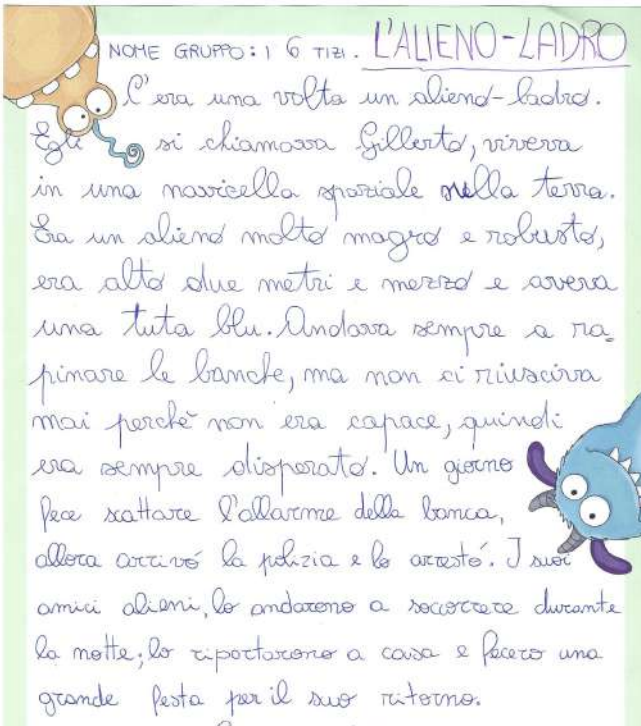 NOME GRUPPO: I 6 TIZI. L'ALIENO-LADRO
C'era una volta un alieno-ladro.
Egli si chiamava Gilberto, viveva
in una navicella spaziale nella terra.
Era un alieno molto magro e robusto,
era alto due metri e mezzo e aveva
una tuta blu. Andava sempre a ra_
pinare le banche, ma non ci riusciva
mai perchè non era capace, quindi
era sempre disperato. Un giorno
fece scattare l'allarme della banca,
allora arrivó la polizia e lo arrestó. I suoi
amici alieni, lo andarono a soccorrere durante
la notte; lo riportarono a casa e fecero una
grande festa per il suo ritorno.